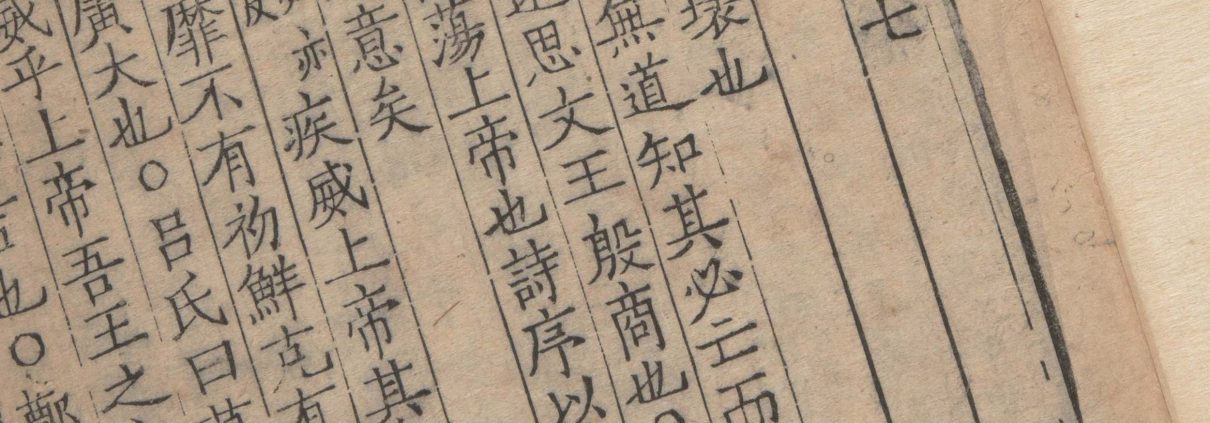 七
壞也
無道知其必亡而
思文王殷商也○
蕩上帝也詩序以
意矣
亦疾威上帝其
靡不有初鮮克有
廣大也○呂氏曰
威乎上帝吾王之
也○鄭